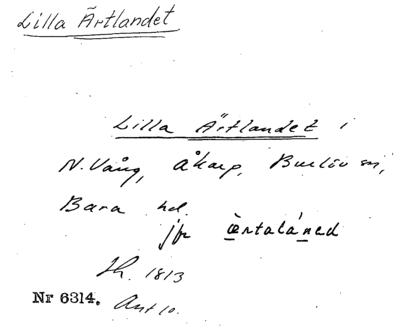 Lilla Ärtlandet
Lilla Ärtlandet i
N. Vång, Åkarp, Burlöv sn,
Bara hd.
jfr ærtaláned
Sk. 1813
Nr 6314. Ant 10.